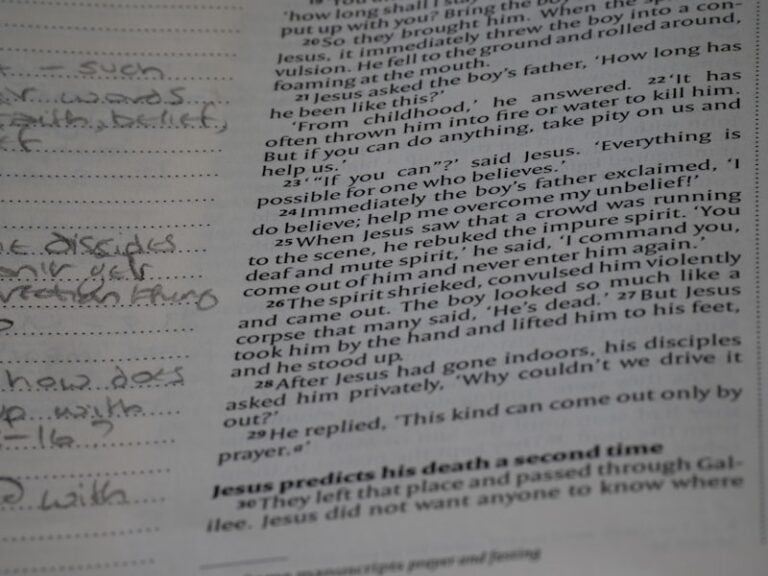 – such
words
faith, belief,
how does
up with
-16?
with
19
'how long shall I
put up with you? Bring the
20So they brought him. When the
Jesus, it immediately threw the boy into a con-
vulsion. He fell to the ground and rolled around,
foaming at the mouth.
21Jesus asked the boy's father, 'How long has
he been like this?'
'From childhood,' he answered. 22'It has
often thrown him into fire or water to kill him.
But if you can do anything, take pity on us and
help us.'
23'"If you can"?' said Jesus. 'Everything is
possible for one who believes.'
24Immediately the boy's father exclaimed, 'I
do believe; help me overcome my unbelief!'
25When Jesus saw that a crowd was running
to the scene, he rebuked the impure spirit. 'You
deaf and mute spirit,' he said, 'I command you,
come out of him and never enter him again.'
26The spirit shrieked, convulsed him violently
and came out. The boy looked so much like a
corpse that many said, 'He's dead.' 27But Jesus
took him by the hand and lifted him to his feet,
and he stood up.
28After Jesus had gone indoors, his disciples
asked him privately, 'Why couldn't we drive it
out?'
29He replied, 'This kind can come out only by
prayer.a'
Jesus predicts his death a second time
30They left that place and passed through Gal-
ilee. Jesus did not want anyone to know where
manuscripts prayer and fasting